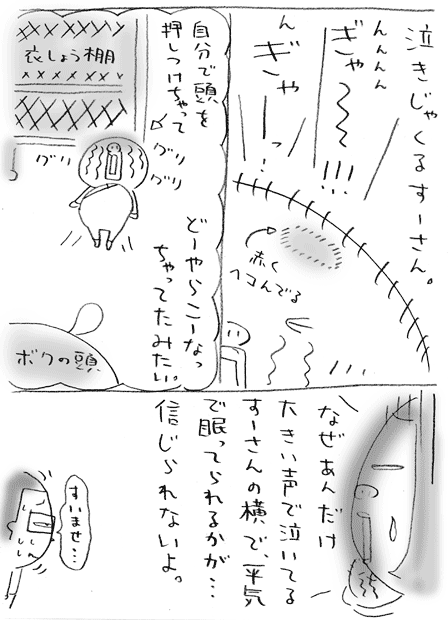 泣きじゃくるすーさん。
んんんん
ぎゃ〜〜!!!
んぎゃーっ!
赤く
ヘコんでる
自分で頭を
押しつけちゃって
グリ
グリ
グリ
衣しょう棚
どーやらこーなっ
ちゃってたみたい。
ボクの頭
なぜあんだけ
大きい声で泣いてる
すーさんの横で、平気
で眠ってられるかが…
信じられないよ。
すいませ…